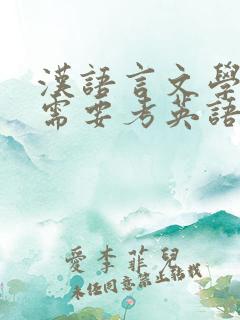 漢語言文學
需要考英語
愛李菲兒
未經同意禁止轉載